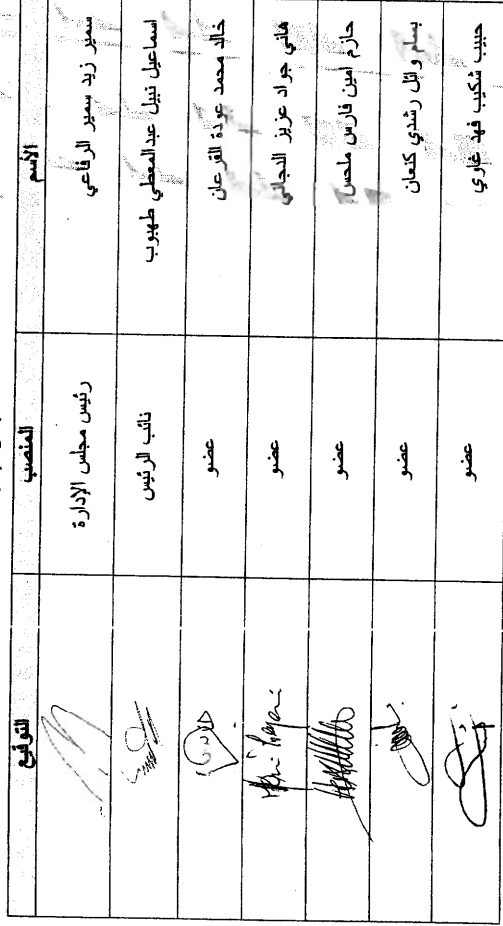 الاسم المنصب التوقيع
سمير زيد سمير الرفاعي رئيس مجلس الإدارة
اسماعيل نبيل عبدالمعطي طهبوب نائب الرئيس
خالد محمد عودة القرعان عضو
هاني جواد عزيز الدجاني عضو
حازم امين فارس ملحس عضو
بسام وائل رشدي كنعان عضو
حبيب شكيب فهد غاوي عضو